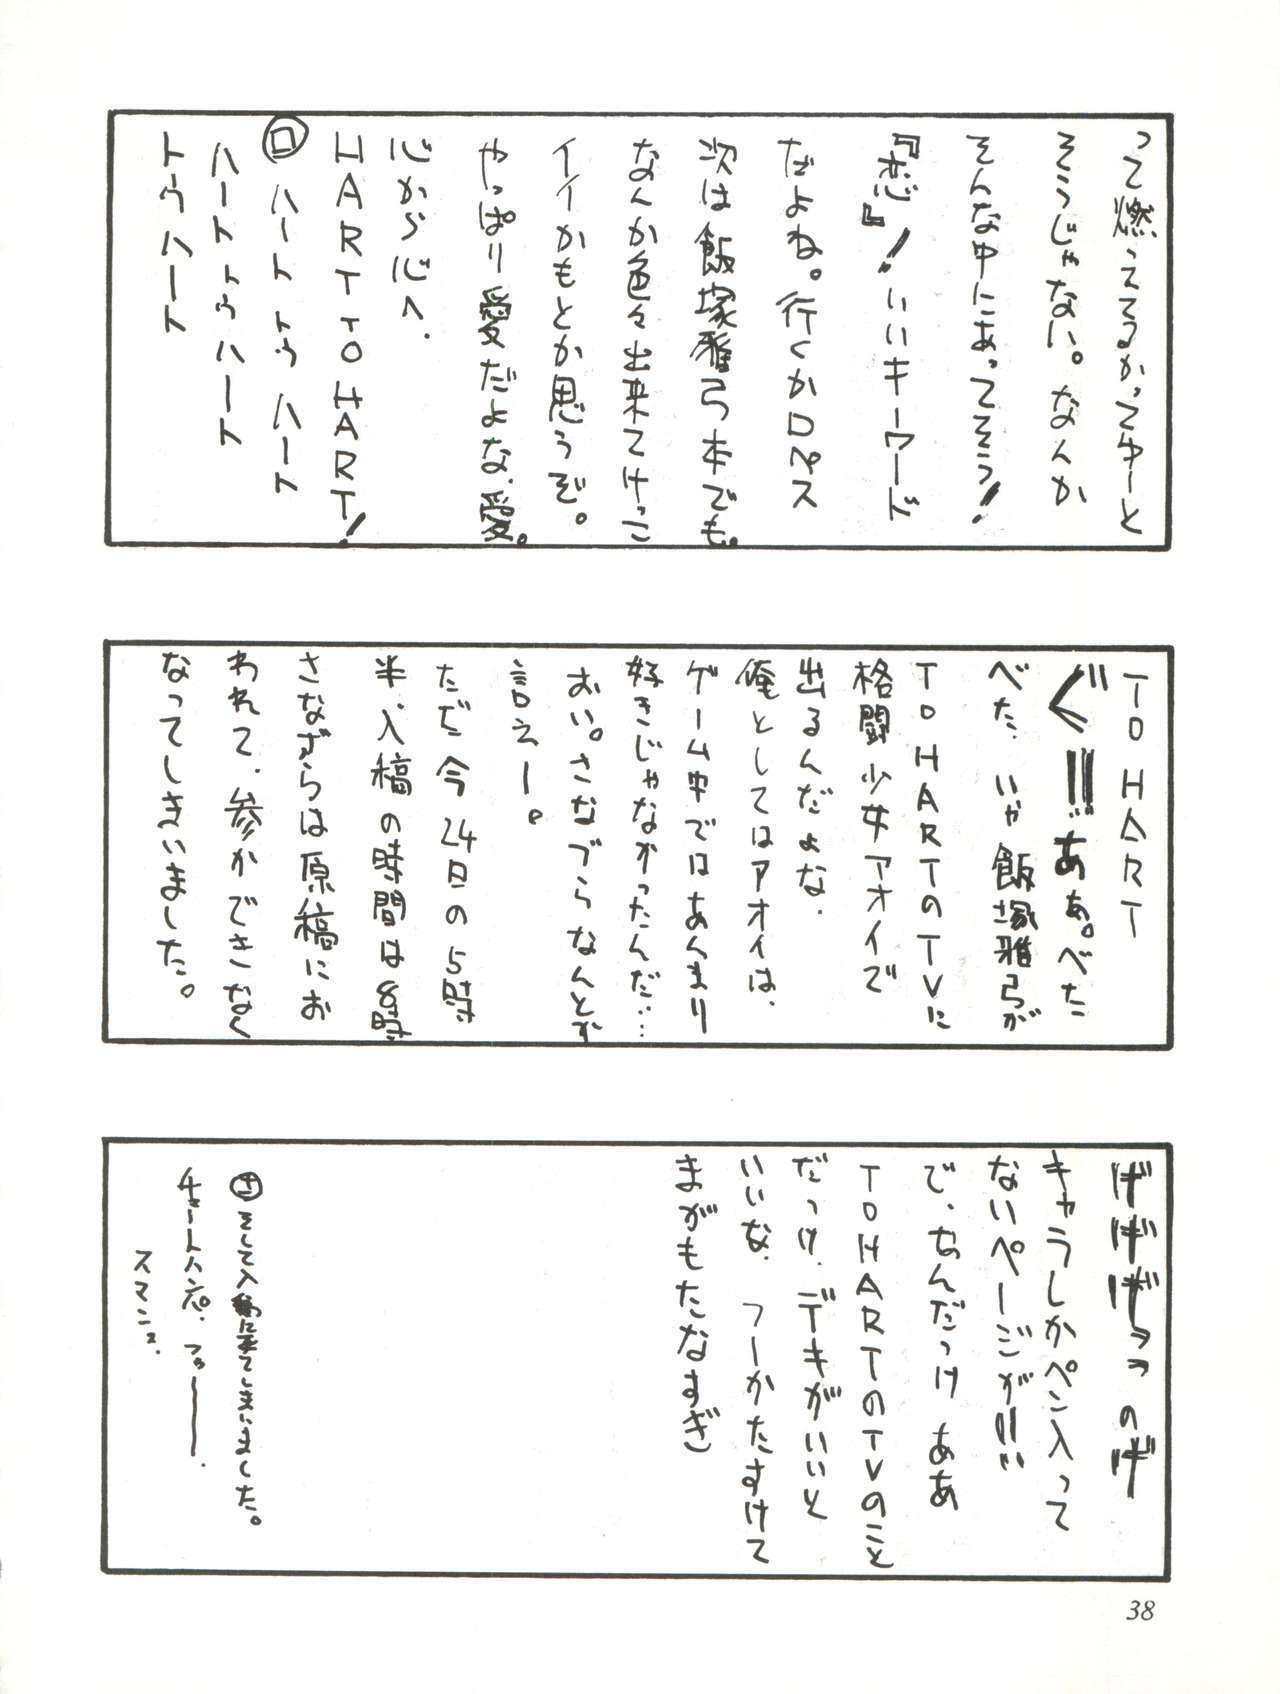 って燃えてるかってゆーと
そうじゃない。なんか
そんな中にあってそう!
『恋』!いいキーワード
だよね。行くかロペス
次は飯塚雅弓本でも。
なんか色々出来てけっこ
イイかもとか思うぞ。
やっぱり愛だよな、愛。
心から心へ.
HART TO HART!
ロ ハート トゥ ハート
ハート トゥ ハート
トゥ ハート
TO HART
ぐ!!!゛あぁ。べた
べた、いや飯塚雅弓が
TO HARTのTVに
格闘少女アオイで
出るんだよな.
俺としてはアオイは、
ゲーム中ではあんまり
好きじゃなかったんだ…
おい。さなづらなんとか
言えー。
ただ今24日の5時
半、入稿の時間は8時
さなずらは原稿にお
われて、参かできなく
なってしまいました。
げげげぅぅのげ
キャラしかペン入って
ないページが!!!
で、なんだっけ ああ
TO HARTのTVのこと
だっけ.デキがいいと
いいな. つーかたすけて
まがもたなすぎ
さ そして入稿に来てしまいました。
チョートハンパ. フゥーーー.
スマンヌ.
38